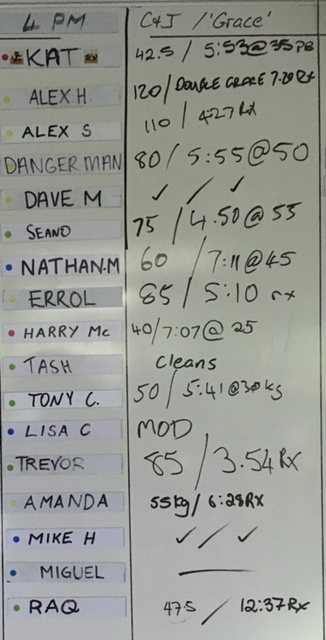 4 PM C&J / 'Grace'
KAT 42.5 / 5:53@35 PB
ALEX H. 120 / DOUBLE GRACE 7:20 Rx
ALEX S 110 / 4:27 Rx
DANGERMAN 80 / 5:55@50
DAVE M ✓ / ✓
SEANO 75 / 4.50@55
NATHAN.M 60 / 7:11@45
ERROL 85 / 5:10 rx
HARRY Mc 40/7:07@25
TASH Cleans
TONY C. 50 / 5:41@30kg
LISA C MOD
TREVOR 85 / 3.54 Rx
AMANDA 55kg / 6:28 Rx
MIKE H ✓ / ✓
MIGUEL —
RAQ 47.5 / 12:37 Rx